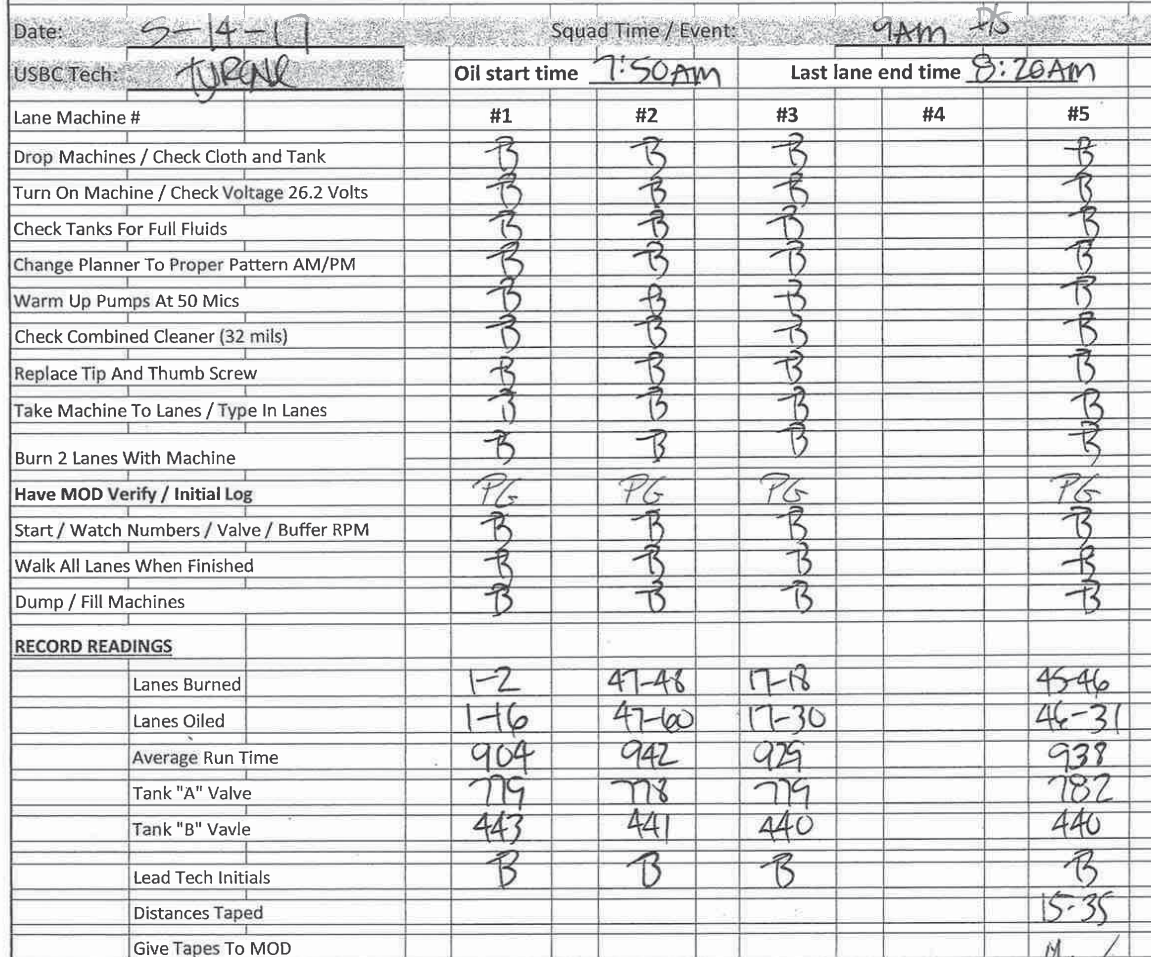 Date: 5-14-17 Squad Time / Event: 9AM D/S
USBC Tech: TYRONE Oil start time 7:50AM Last lane end time 8:20AM
Lane Machine # #1 #2 #3 #4 #5
Drop Machines / Check Cloth and Tank B B B B
Turn On Machine / Check Voltage 26.2 Volts B B B B
Check Tanks For Full Fluids B B B B
Change Planner To Proper Pattern AM/PM B B B B
Warm Up Pumps At 50 Mics B B B B
Check Combined Cleaner (32 mils) B B B B
Replace Tip And Thumb Screw B B B B
Take Machine To Lanes / Type In Lanes B B B B
Burn 2 Lanes With Machine B B B B
Have MOD Verify / Initial Log PG PG PG PG
Start / Watch Numbers / Valve / Buffer RPM B B B B
Walk All Lanes When Finished B B B B
Dump / Fill Machines B B B B
RECORD READINGS
Lanes Burned 1-2 47-48 17-18 45-46
Lanes Oiled 1-16 47-60 17-30 46-31
Average Run Time 904 942 929 938
Tank "A" Valve 779 778 779 782
Tank "B" Vavle 443 441 440 440
Lead Tech Initials B B B B
Distances Taped 15-35
Give Tapes To MOD